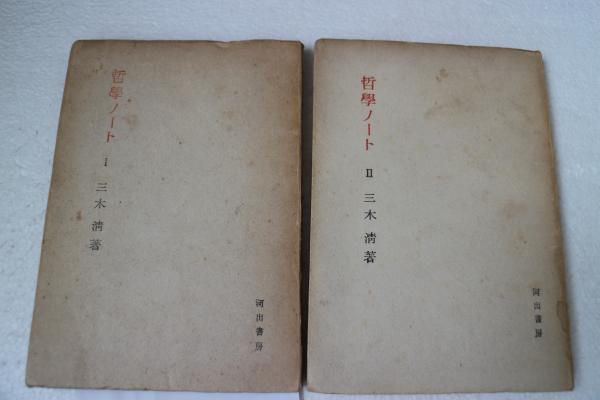 哲學ノート
I
三木淸著
河出書房
哲學ノート
II
三木淸著
河出書房